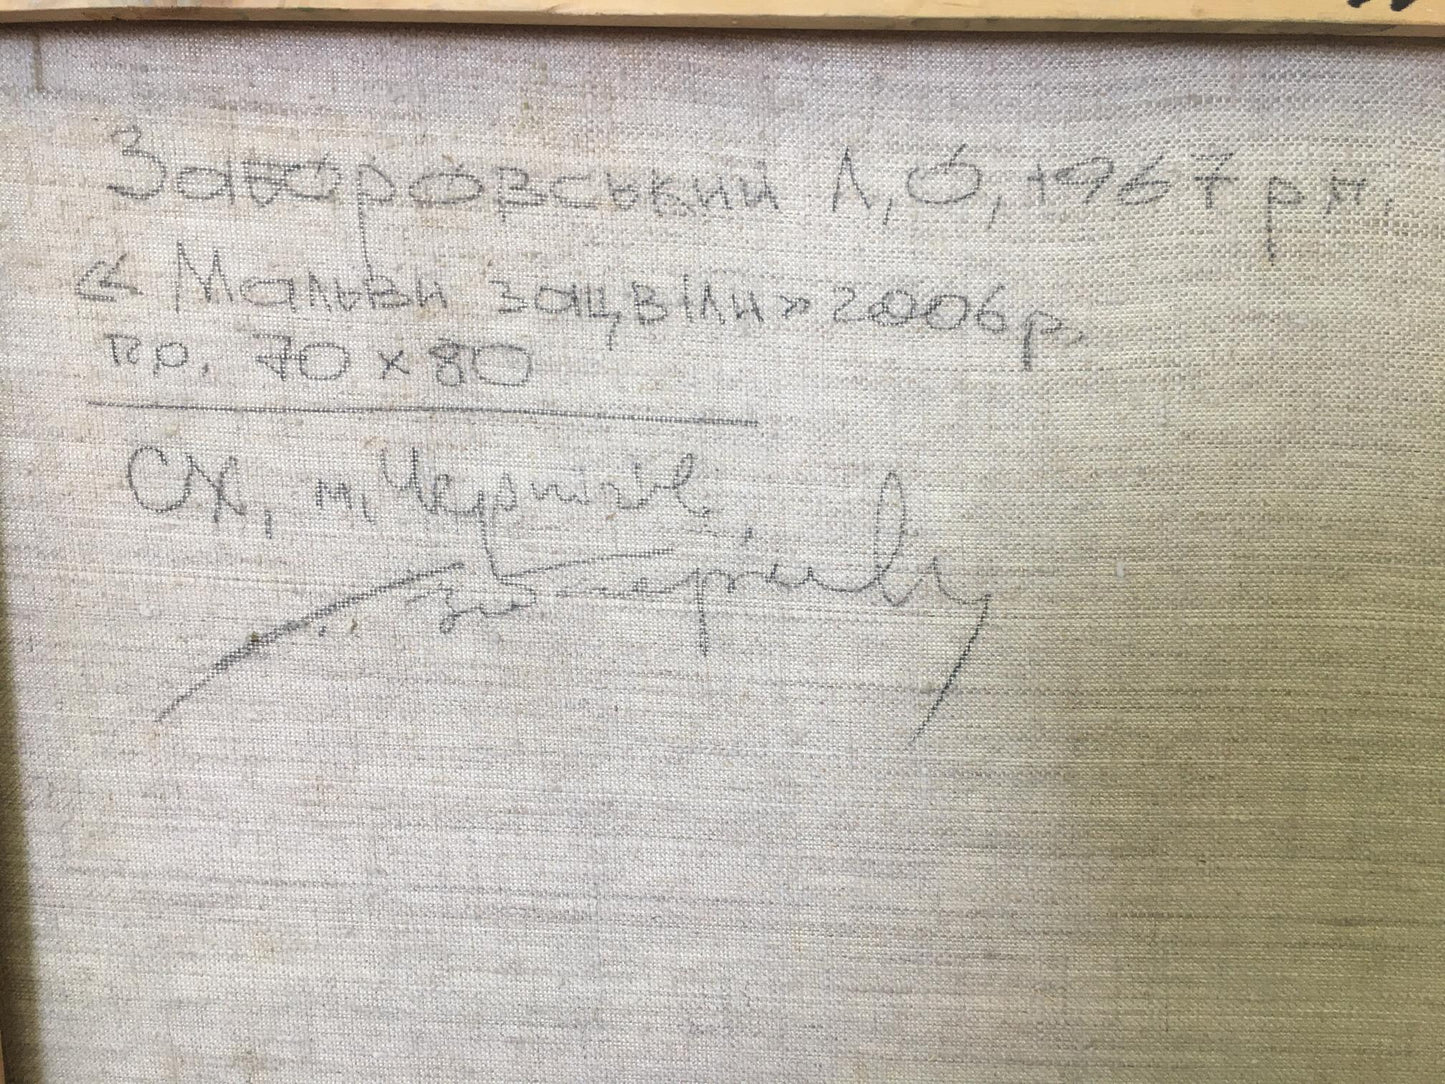 Заборовський Л, О, 1967 рн,
« Мальви зацвіли » 2006р.
пр. 70 х 80
СХ, м, Чернігів